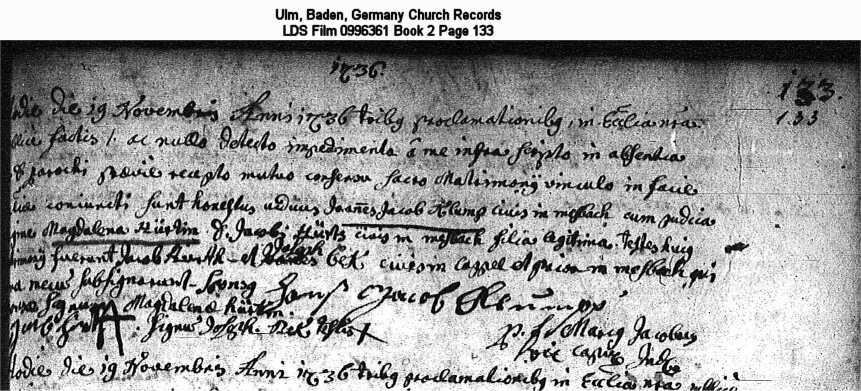 Ulm, Baden, Germany Church Records
LDS Film 0996361 Book 2 Page 133
1736.
133.
133
die 19 Novembris Anni 1736 tribq proclamationibq, in Ecclia nra
factis /. ac nullo detecto impedimento a me infra scripto in absentia
D parochi prævie recepto mutuo consensu sacro Matrimonij vinculo in facie
coniuncti sunt honestus viduus Joañes Jacob Klump civis in mesbach cum pudica
Magdalena Hürtin D. Jacobi Hürts civis in mesbach filia legitima. Testes huiq
fuerunt Jacob Hurth et Joseph cives in Cappel et in mesbach, qui
mecum subsignarunt. Sponsq Hanß Jacob Klumpp
Signum Magdalena Hürtin
Signum Joseph testis X
P. Marcq Jacobus
hodie die 19 Novembris Anni 1736 tribq proclamationibq in Ecclia nra